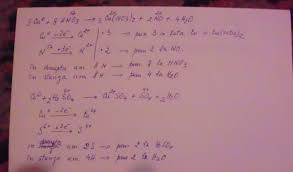 3 Cu + 8 HNO3 → 3 Cu(NO3)2 + 2 NO + 4 H2O
Cu⁰ -2e⁻→ Cu²⁺ | · 3 → pun 3 în fața lui
N⁵⁺ +3e⁻→ N²⁺ | · 2 → pun 2 la NO.
În dreapta am 8 N → pun 8 la HNO3
În stânga am 8 H → pun 4 la H2O
Cu⁰ + H2SO4 → CuSO4 + SO2 + 2 H2O
Cu⁰ -2e⁻→ Cu²⁺
S⁶⁺ +2e⁻→ S⁴⁺
În am 2 S → pun 2 la H2SO4
În stânga am 4H → pun 2 la H2O